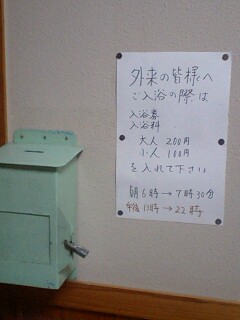 外来の皆様へ
ご入浴の際は
入浴券
入浴料
大人 200円
小人 100円
を入れて下さい
朝 6時→7時30分
午後 1時→22時